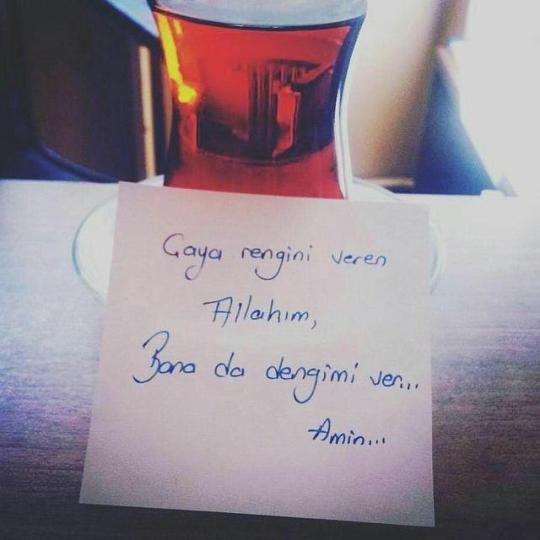 Çaya rengini veren
Allahım,
Bana da dengimi ver...
Amin...